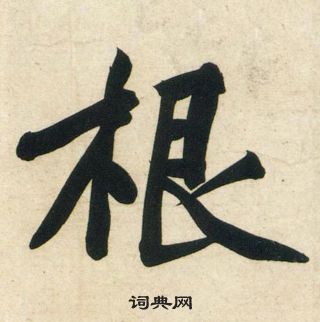 根
词典网